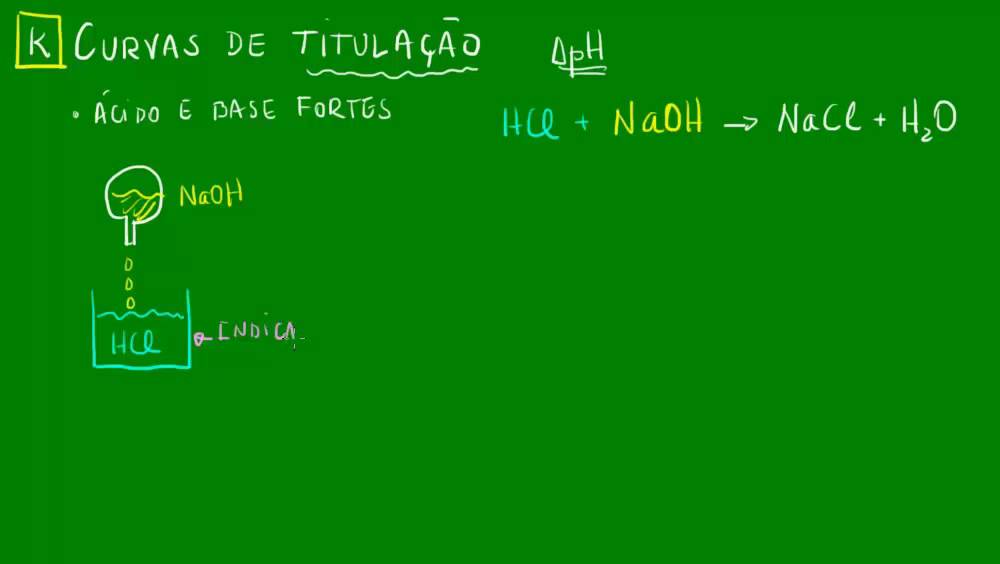 K CURVAS DE TITULAÇÃO ΔpH
• ÁCIDO E BASE FORTES
HCl + NaOH → NaCl + H₂O
NaOH
HCl
INDICA